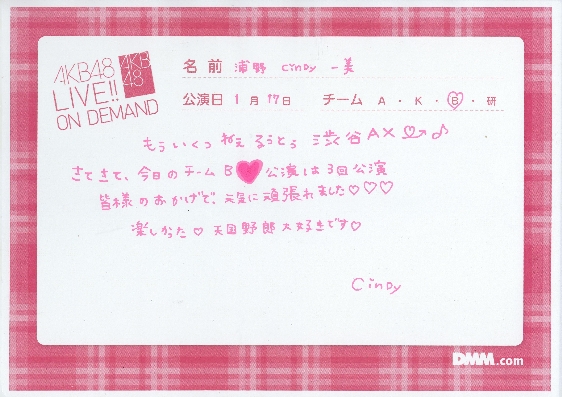 AKB48
LIVE!!
ON DEMAND
AKB
48
名前 浦野 Cindy 一美
公演日 1月17日 チーム A・K・B・研
もういくつ ねる 渋谷AX♡♪
さてさて、今日のチームB♥公演は3回公演
皆様のおかげで、元気に頑張れました♡♡♡
楽しかった♡ 天国野郎大好きです♡
Cindy
DMM.com